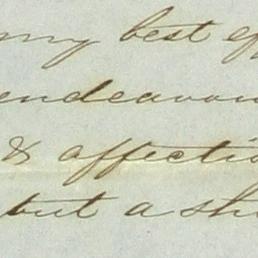 my best ef
endeavou
& affectio
but a sh